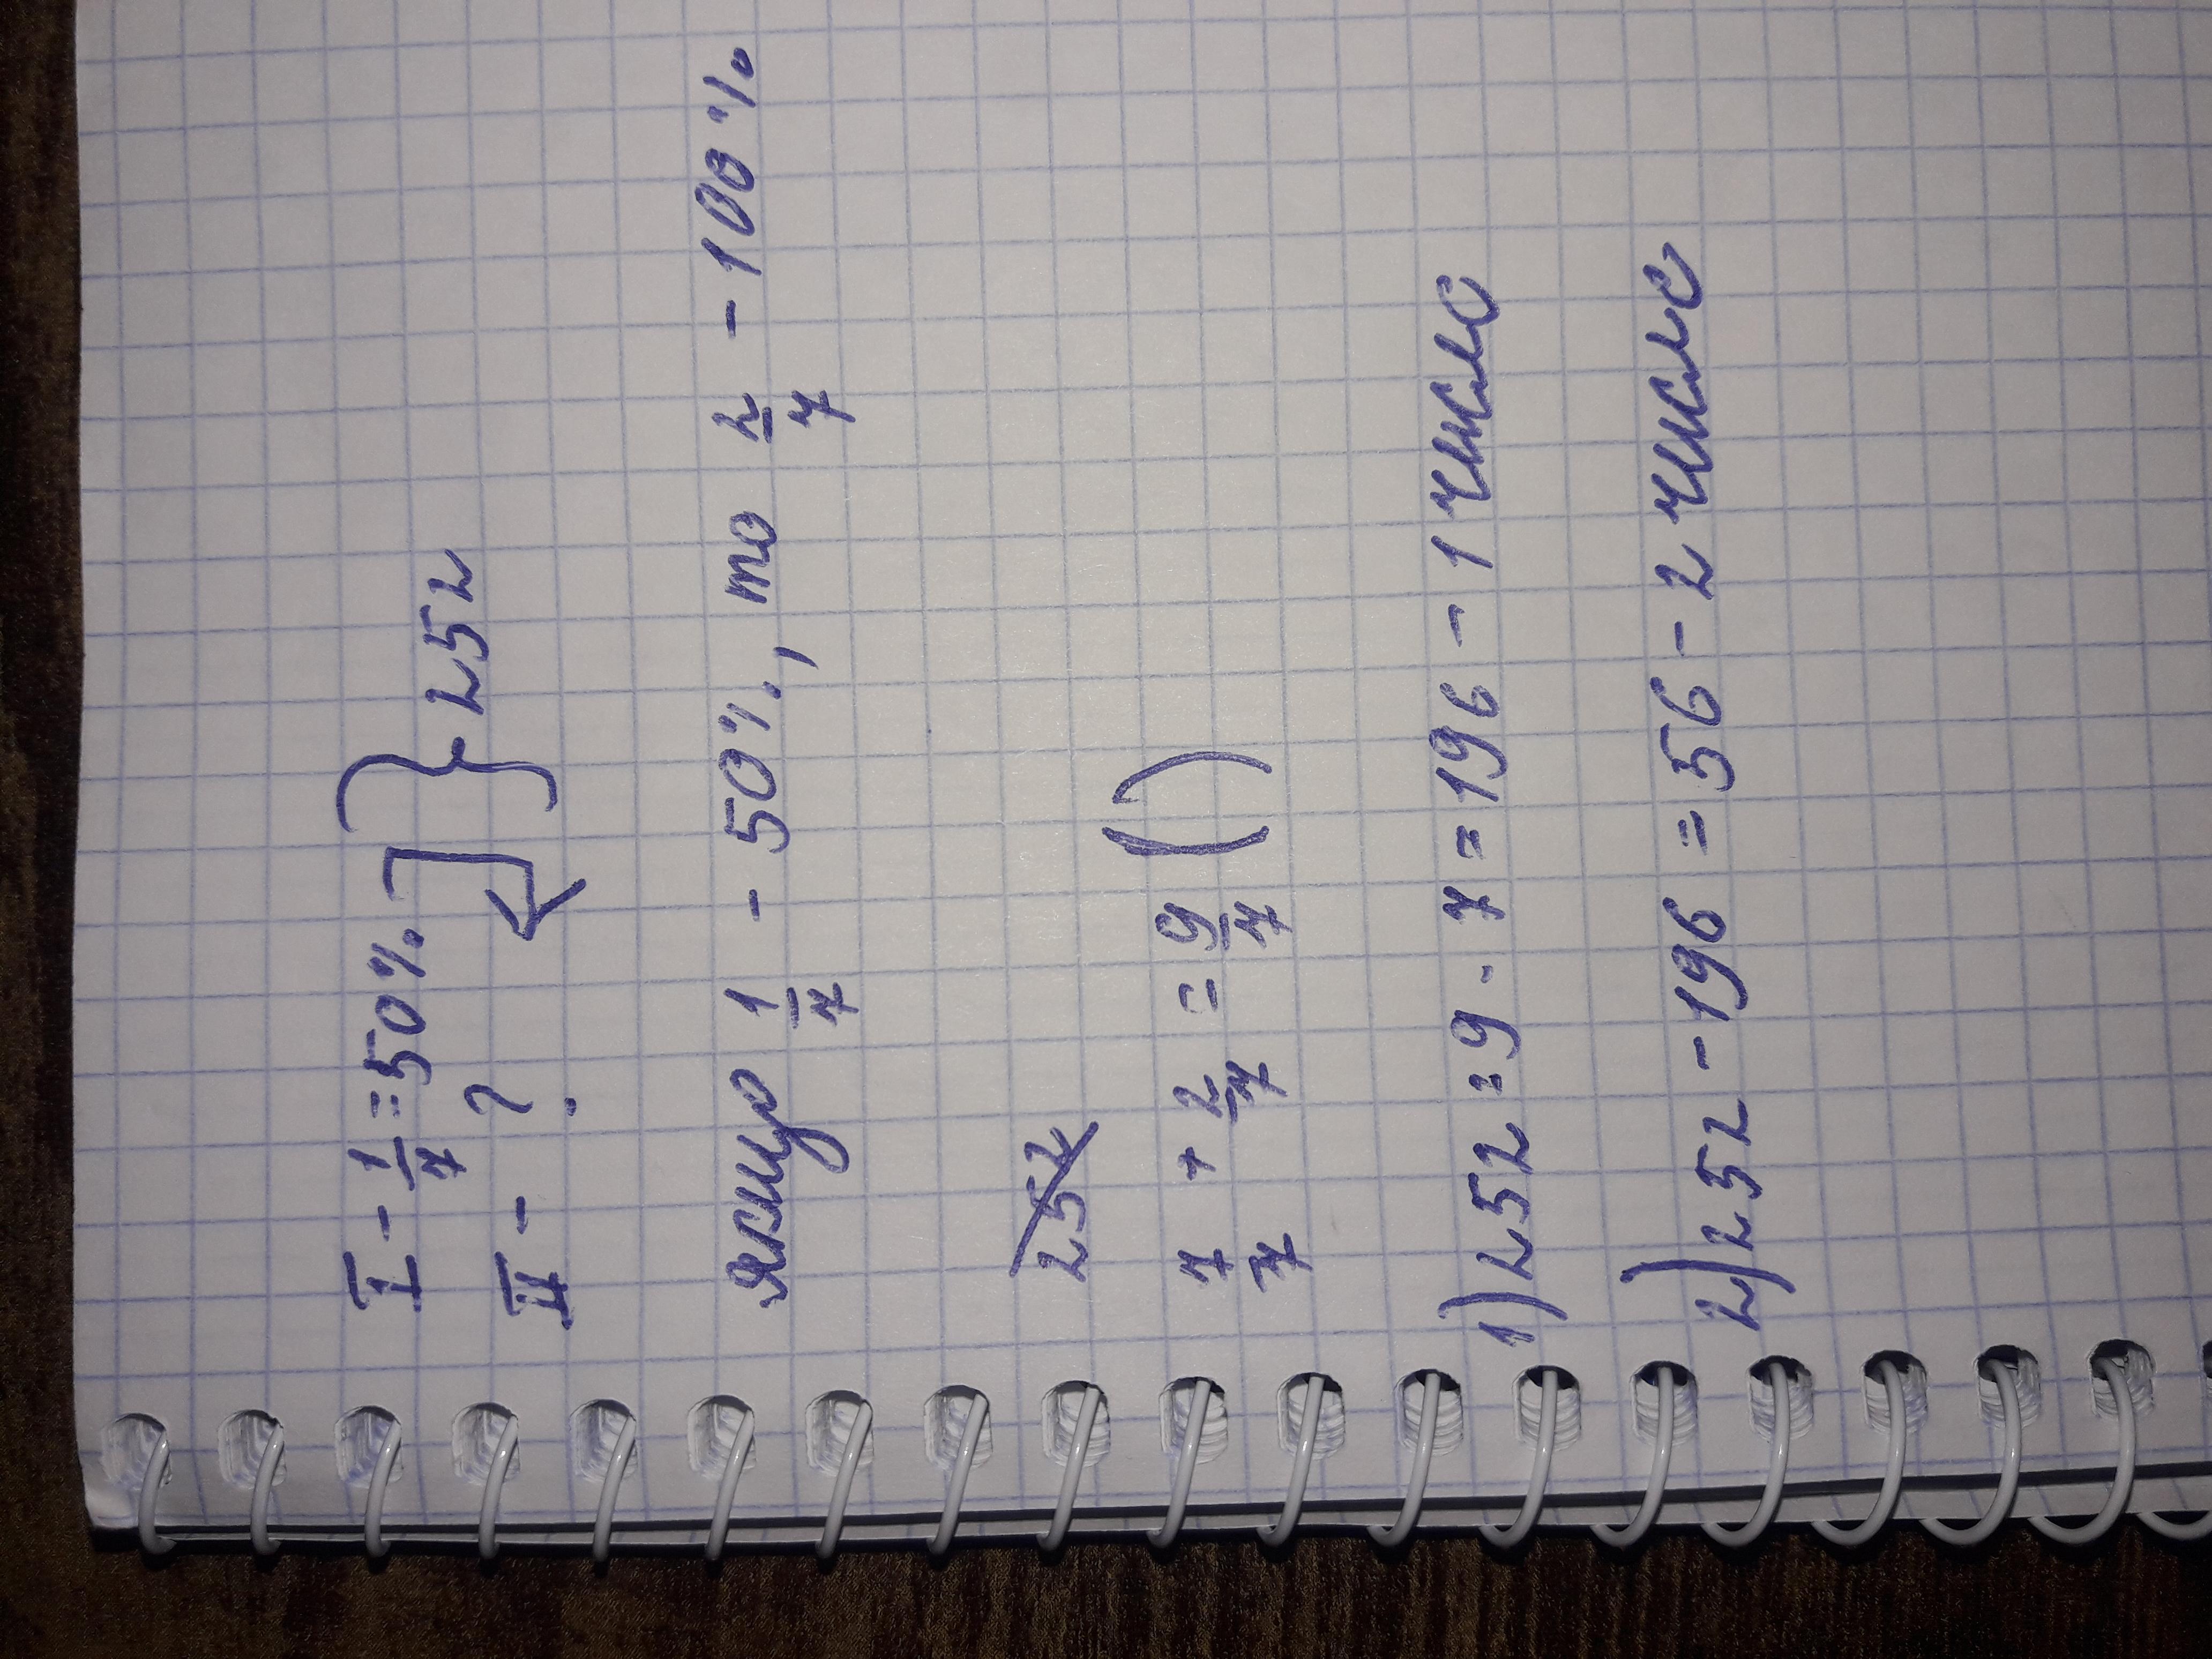 I - 1/7 = 50% } 252
II - ?
якщо 1/7 - 50%, то 2/7 - 100%
252
7/7 + 2/7 = 9/7 ( )
1) 252 : 9 · 7 = 196 - 1 число
2) 252 - 196 = 56 - 2 число